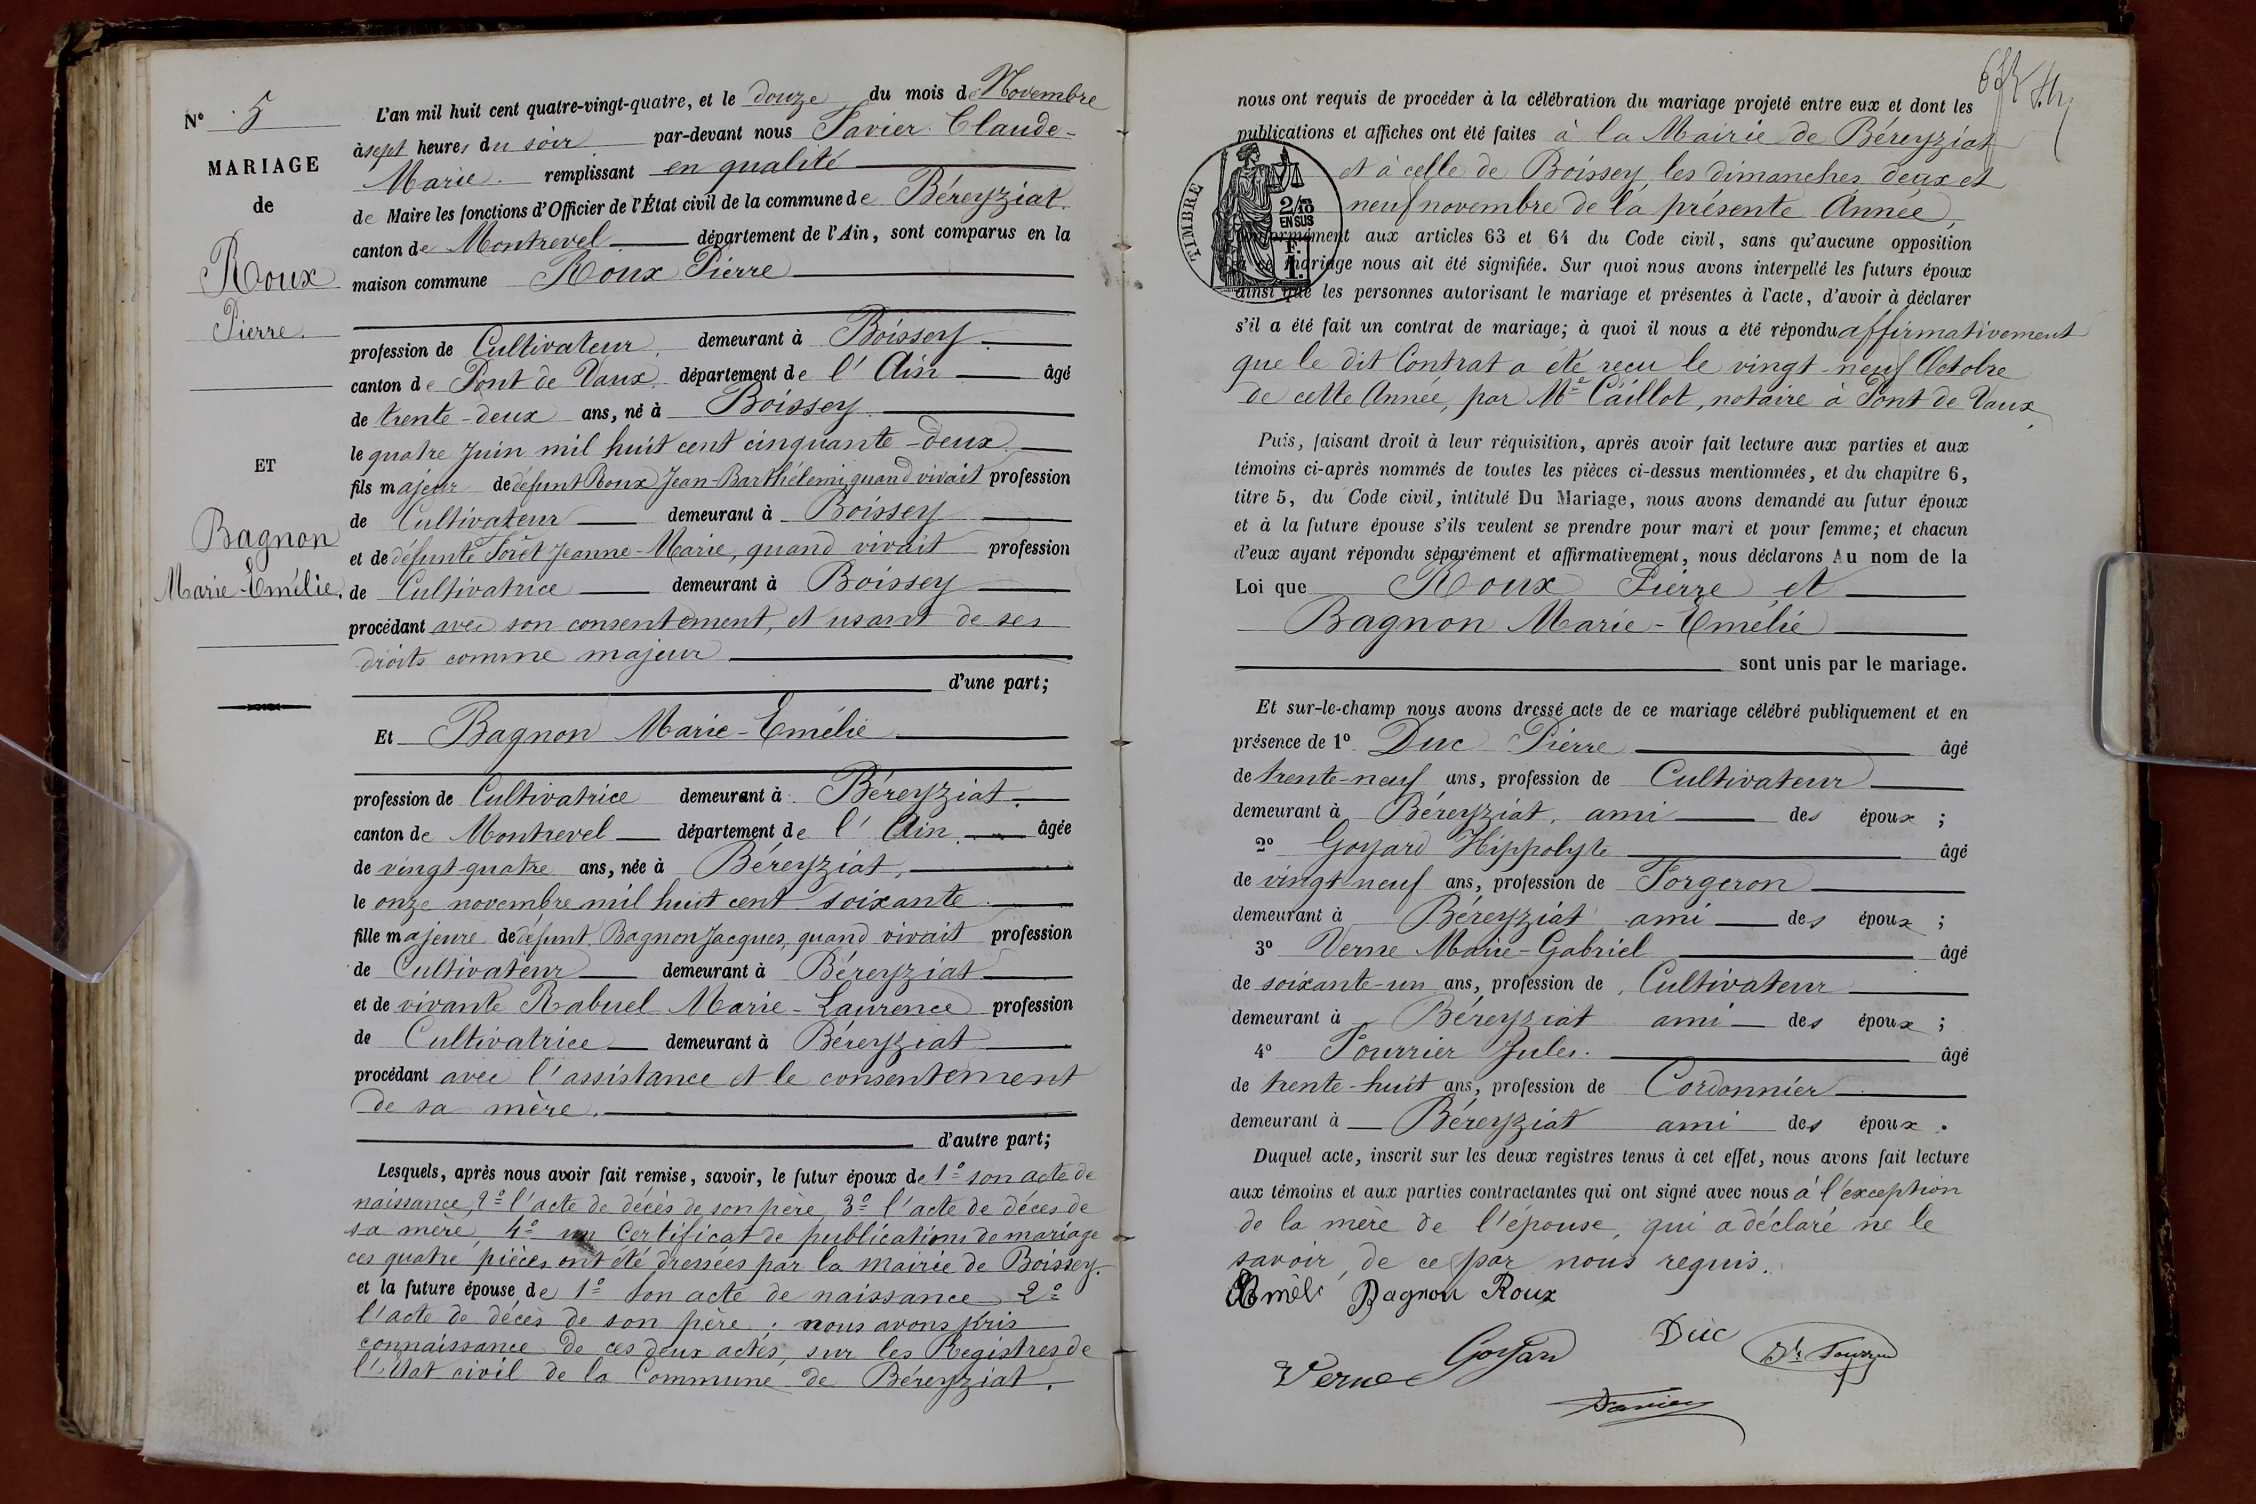 N° 5
MARIAGE
de
Roux
Pierre.
ET
Bagnon
Marie-Emélie.
L'an mil huit cent quatre-vingt-quatre, et le douze du mois de Novembre
à sept heures du soir par-devant nous Favier Claude-
Marie. remplissant en qualité
de Maire les fonctions d'Officier de l'État civil de la commune de Béreyziat.
canton de Montrevel département de l'Ain, sont comparus en la
maison commune Roux Pierre
profession de Cultivateur, demeurant à Boissey.
canton de Pont de Vaux, département de l'Ain âgé
de trente-deux ans, né à Boissey.
le quatre Juin mil huit cent cinquante-deux.
fils majeur de défunt Roux Jean-Barthélemi, quand vivait profession
de Cultivateur demeurant à Boissey
et de défunte Forêt Jeanne-Marie, quand vivait profession
de Cultivatrice demeurant à Boissey
procédant avec son consentement, et usant de ses
droits comme majeur
d'une part;
Et Bagnon Marie-Emélie
profession de Cultivatrice demeurant à Béreyziat.
canton de Montrevel département de l'Ain. âgée
de vingt-quatre ans, née à Béreyziat,
le onze novembre mil huit cent soixante.
fille majeure de défunt Bagnon Jacques, quand vivait profession
de Cultivateur demeurant à Béreyziat
et de vivante Rabuel Marie-Laurence profession
de Cultivatrice demeurant à Béreyziat
procédant avec l'assistance et le consentement
de sa mère.
d'autre part;
Lesquels, après nous avoir fait remise, savoir, le futur époux de 1° son acte de
naissance, 2° l'acte de décès de son père, 3° l'acte de décès de
sa mère, 4° un Certificat de publications de mariage
ces quatre pièces ont été dressées par la mairie de Boissey.
et la future épouse de 1° son acte de naissance 2°
l'acte de décès de son père; nous avons pris
connaissance de ces deux actes, sur les Registres de
l'état civil de la Commune de Béreyziat.
nous ont requis de procéder à la célébration du mariage projeté entre eux et dont les
publications et affiches ont été faites à la Mairie de Béreyziat
et à celle de Boissey les dimanches deux et
neuf novembre de la présente Année,
conformément aux articles 63 et 64 du Code civil, sans qu'aucune opposition
à ce mariage nous ait été signifiée. Sur quoi nous avons interpellé les futurs époux
ainsi que les personnes autorisant le mariage et présentes à l'acte, d'avoir à déclarer
s'il a été fait un contrat de mariage; à quoi il nous a été répondu affirmativement
que le dit Contrat a été reçu le vingt-neuf Octobre
de cette Année, par Me Caillot, notaire à Pont de Vaux,
TIMBRE
2/10
EN SUS
F.
1.
Puis, faisant droit à leur réquisition, après avoir fait lecture aux parties et aux
témoins ci-après nommés de toutes les pièces ci-dessus mentionnées, et du chapitre 6,
titre 5, du Code civil, intitulé Du Mariage, nous avons demandé au futur époux
et à la future épouse s'ils veulent se prendre pour mari et pour femme; et chacun
d'eux ayant répondu séparément et affirmativement, nous déclarons Au nom de la
Loi que Roux Pierre et
Bagnon Marie-Emélie
sont unis par le mariage.
Et sur-le-champ nous avons dressé acte de ce mariage célébré publiquement et en
présence de 1° Duc Pierre âgé
de trente-neuf ans, profession de Cultivateur
demeurant à Béreyziat, ami des époux ;
2° Goyard Hippolyte âgé
de vingt neuf ans, profession de Forgeron
demeurant à Béreyziat ami des époux ;
3° Verne Marie-Gabriel âgé
de soixante-un ans, profession de Cultivateur
demeurant à Béreyziat ami des époux ;
4° Fourrier Jules. âgé
de trente-huit ans, profession de Cordonnier
demeurant à Béreyziat ami des époux.
Duquel acte, inscrit sur les deux registres tenus à cet effet, nous avons fait lecture
aux témoins et aux parties contractantes qui ont signé avec nous à l'exception
de la mère de l'épouse, qui a déclaré ne le
savoir, de ce par nous requis.
Bagnon Roux
Duc
Goyard
Verne
Favier